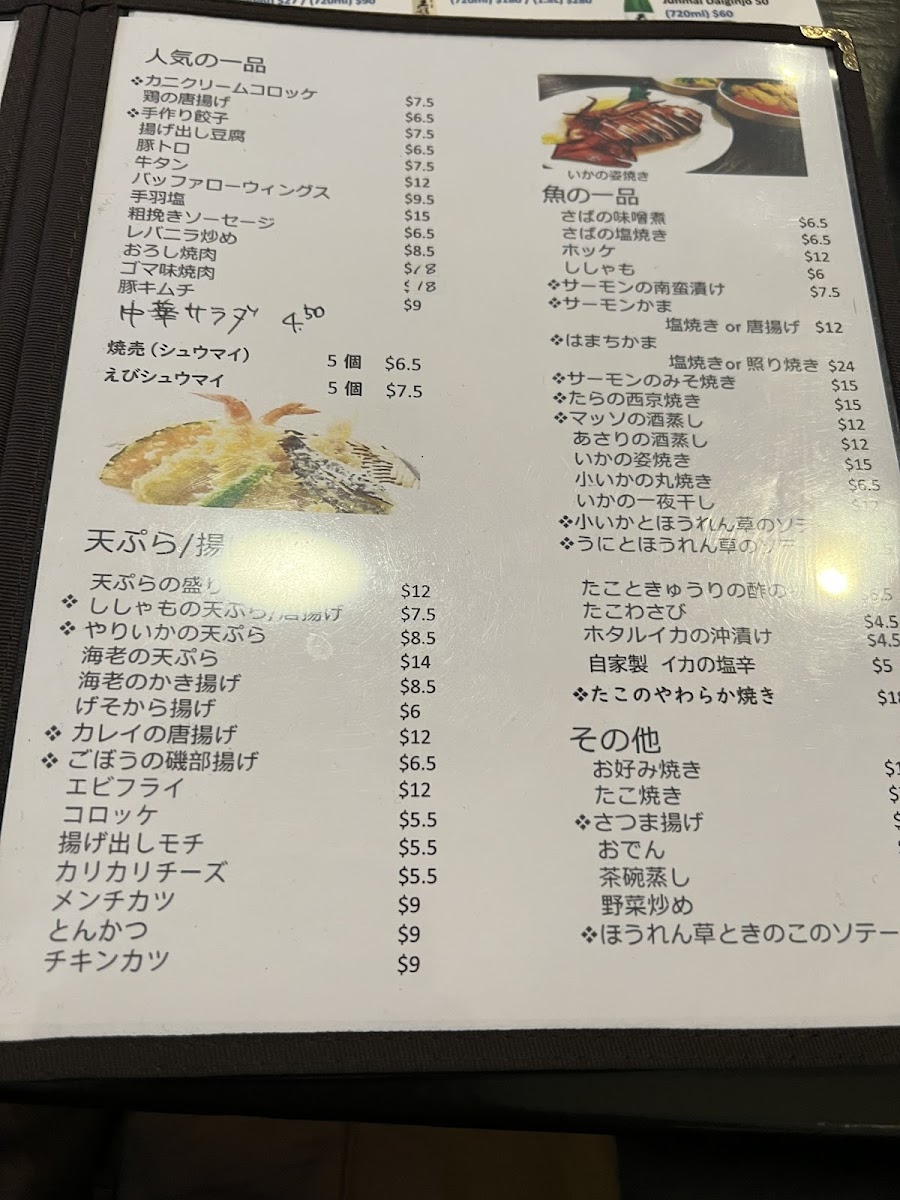 $27 / (720ml) $90
(720ml) $180 / (1.8L) $280
Junmai Daiginjo 50
(720ml) $60
人気の一品
❖カニクリームコロッケ $7.5
鶏の唐揚げ $6.5
❖手作り餃子 $7.5
揚げ出し豆腐 $6.5
豚トロ $7.5
牛タン $12
バッファローウィングス $9.5
手羽塩 $15
粗挽きソーセージ $6.5
レバニラ炒め $8.5
おろし焼肉 $18
ゴマ味焼肉 $18
豚キムチ $9
中華サラダ 4.50
焼売(シュウマイ) 5個 $6.5
えびシュウマイ 5個 $7.5
天ぷら/揚
天ぷらの盛り $12
❖ ししゃもの天ぷら/唐揚げ $7.5
❖ やりいかの天ぷら $8.5
海老の天ぷら $14
海老のかき揚げ $8.5
げそから揚げ $6
❖ カレイの唐揚げ $12
❖ ごぼうの磯部揚げ $6.5
エビフライ $12
コロッケ $5.5
揚げ出しモチ $5.5
カリカリチーズ $5.5
メンチカツ $9
とんかつ $9
チキンカツ $9
いかの姿焼き
魚の一品
さばの味噌煮 $6.5
さばの塩焼き $6.5
ホッケ $12
ししゃも $6
❖サーモンの南蛮漬け $7.5
❖サーモンかま
塩焼き or 唐揚げ $12
❖はまちかま
塩焼きor 照り焼き $24
❖サーモンのみそ焼き $15
❖たらの西京焼き $15
❖マッソの酒蒸し $12
あさりの酒蒸し $12
いかの姿焼き $15
小いかの丸焼き $6.5
いかの一夜干し $12
❖小いかとほうれん草のソテー
❖うにとほうれん草のソテー
たこときゅうりの酢の
たこわさび $4.5
ホタルイカの沖漬け $4.5
自家製 イカの塩辛 $5
❖たこのやわらか焼き
その他
お好み焼き
たこ焼き
❖さつま揚げ
おでん
茶碗蒸し
野菜炒め
❖ほうれん草ときのこのソテー